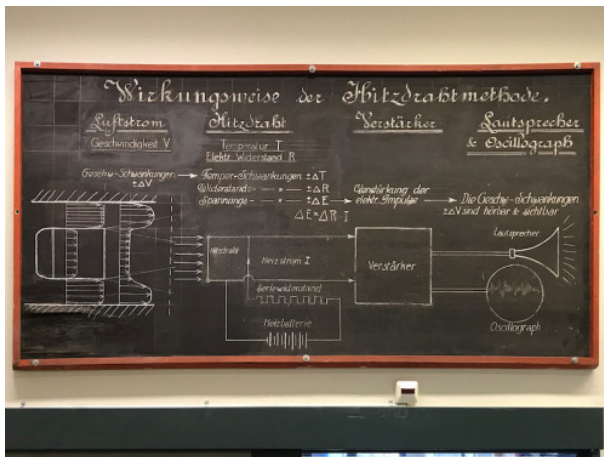 Wirkungsweise der Hitzdrahtmethode.
Luftstrom
Geschwindigkeit V
Hitzdraht
Temperatur T
Elektr. Widerstand R
Verstärker
Lautsprecher
& Oscillograph
Geschw.-Schwankungen
±ΔV
Temper.-Schwankungen ±ΔT
Widerstands- " ±ΔR
Spannungs- " ±ΔE
ΔE=ΔR·I
Verstärkung der
elektr. Impulse
Die Geschw.-Schwankungen
±ΔV sind hörbar & sichtbar
Hitzdraht
Heizstrom I
Seriewiderstand
Heizbatterie
Verstärker
Lautsprecher
Oscillograph